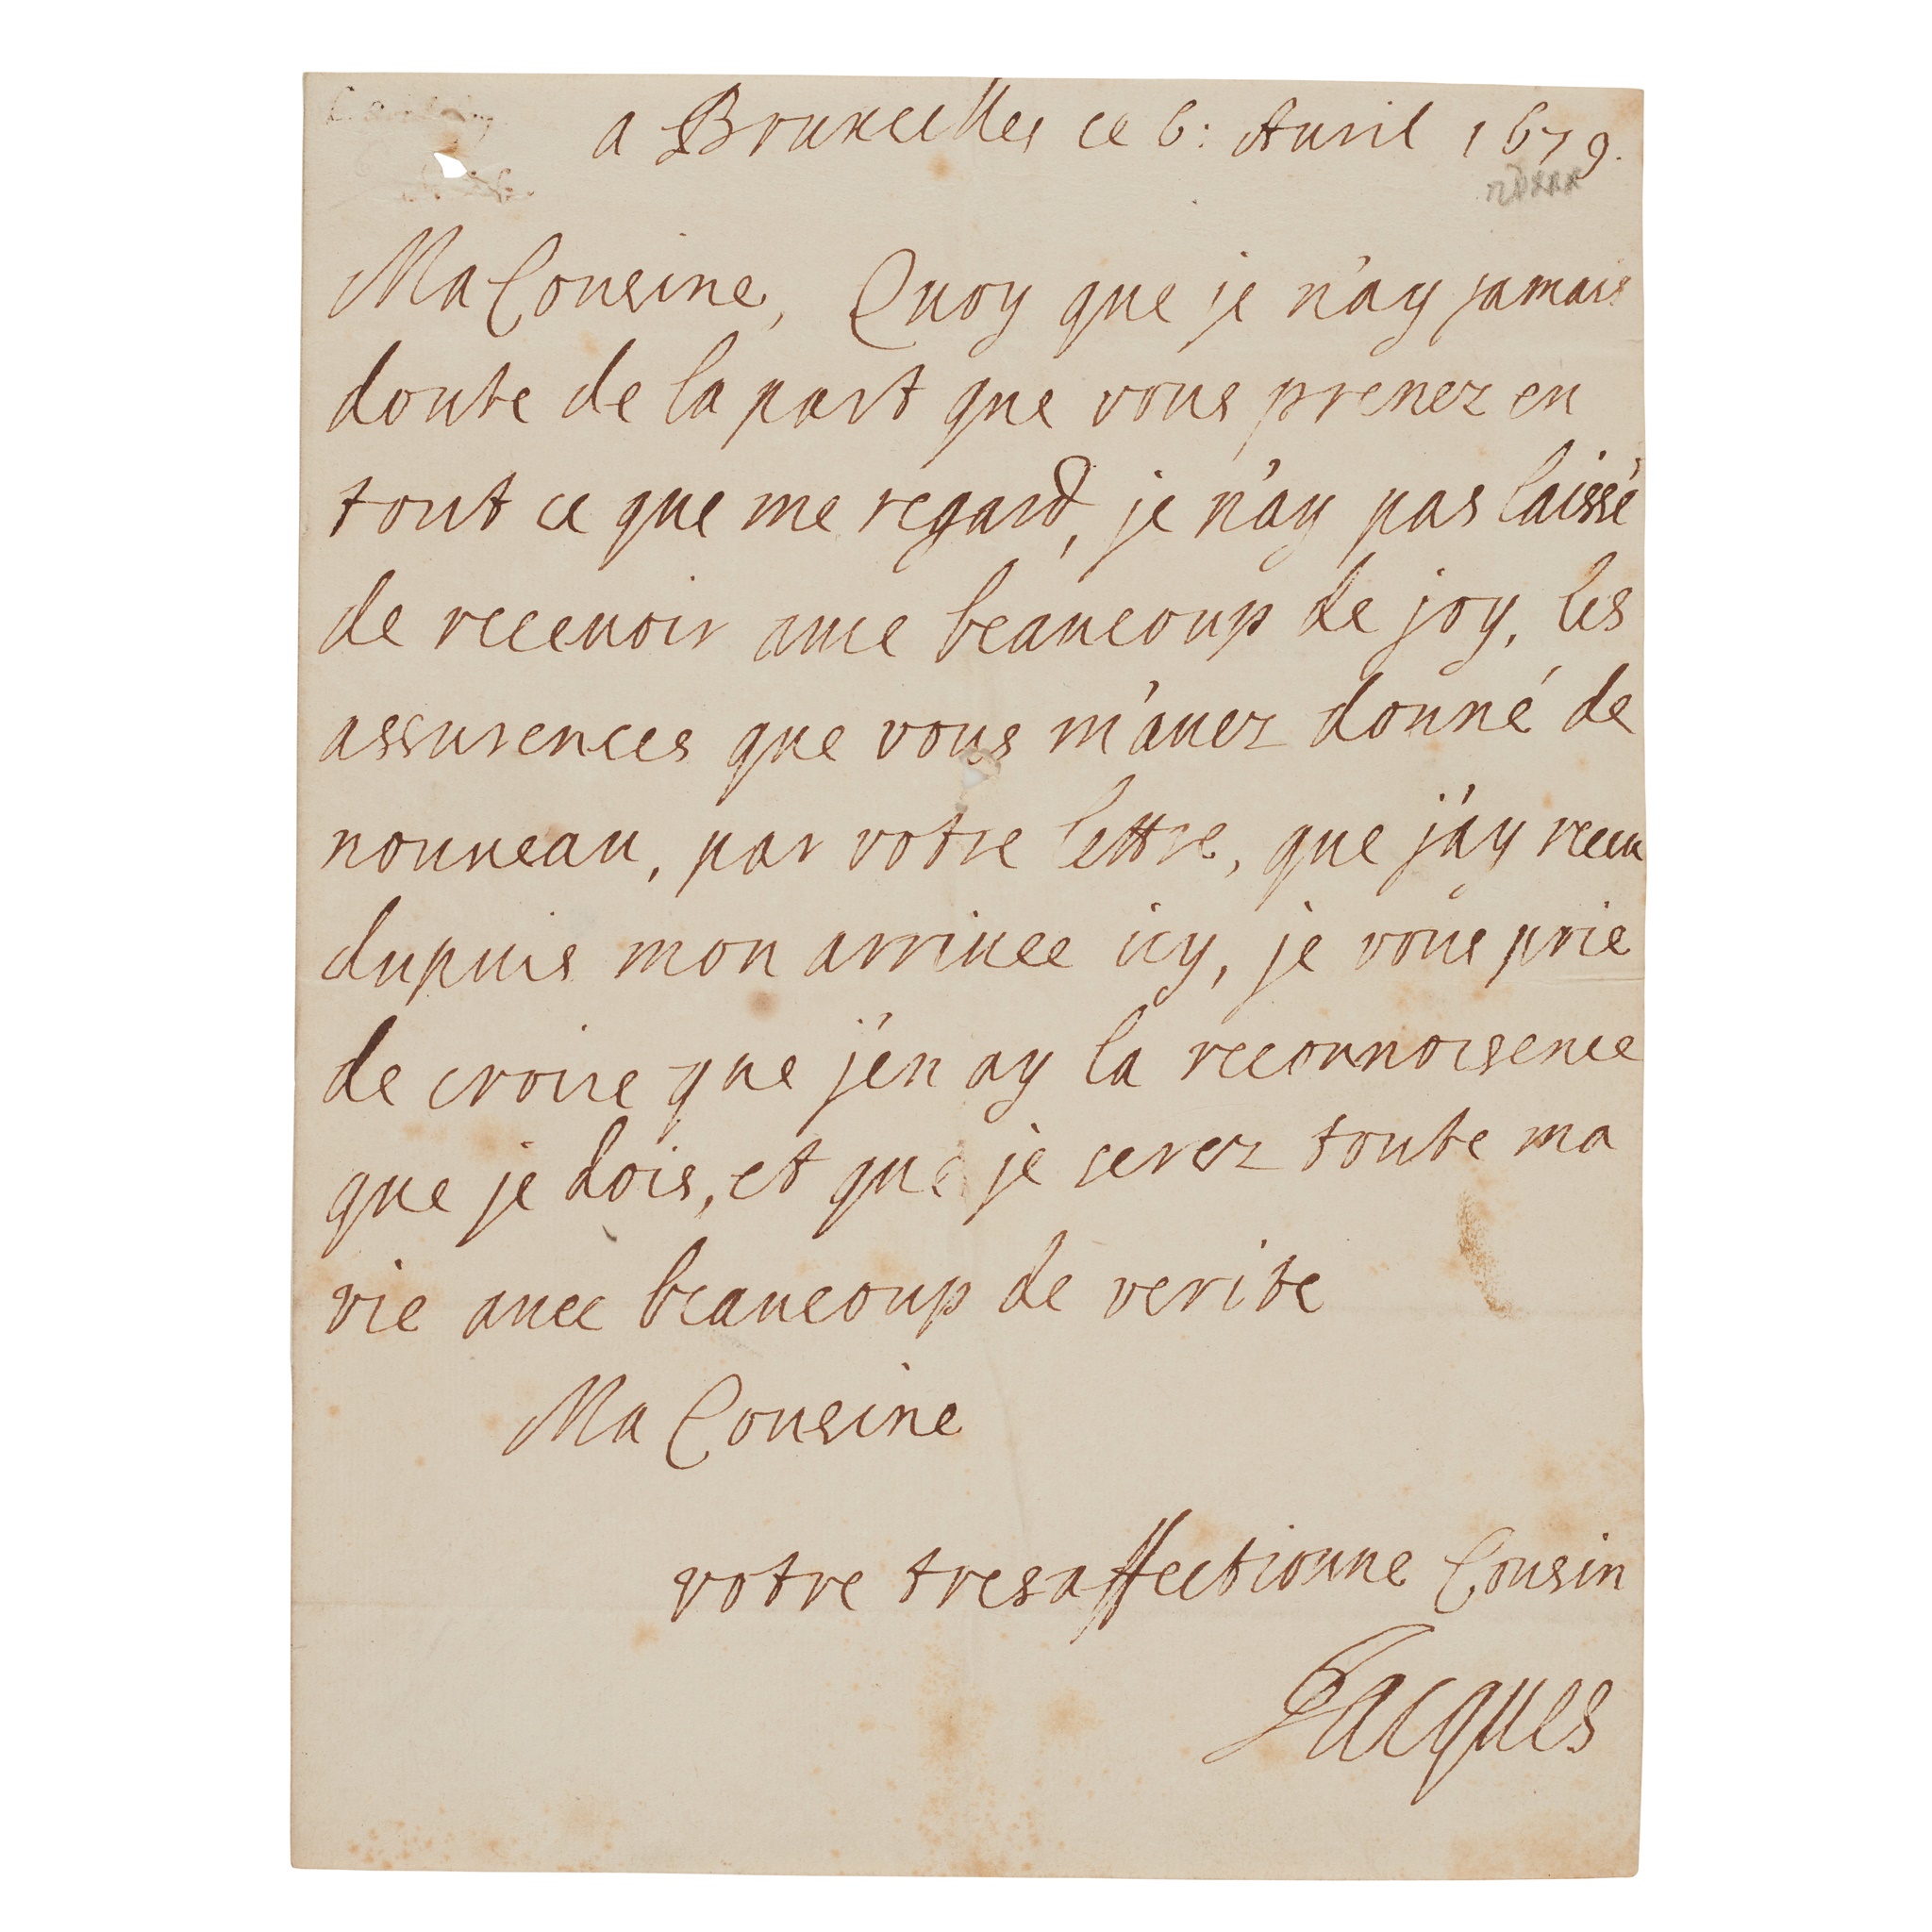 a Bruxcelles ce 6: Auril 1679.
Ma Cousine, Quoy que je n'ay jamais
doute de la part que vous prenez en
tout ce que me regard, je n'ay pas laissé
de receuoir auec beaucoup de joy, les
assurences que vous m'auez donné de
nouueau, par votre lettre, que j'ay receu
dupuis mon arriuee icy, je vous prie
de croire que j'en ay la reconnoisence
que je dois, et que je serez toute ma
vie auec beaucoup de verite
Ma Cousine
votre tresaffectionne Cousin
Jacques